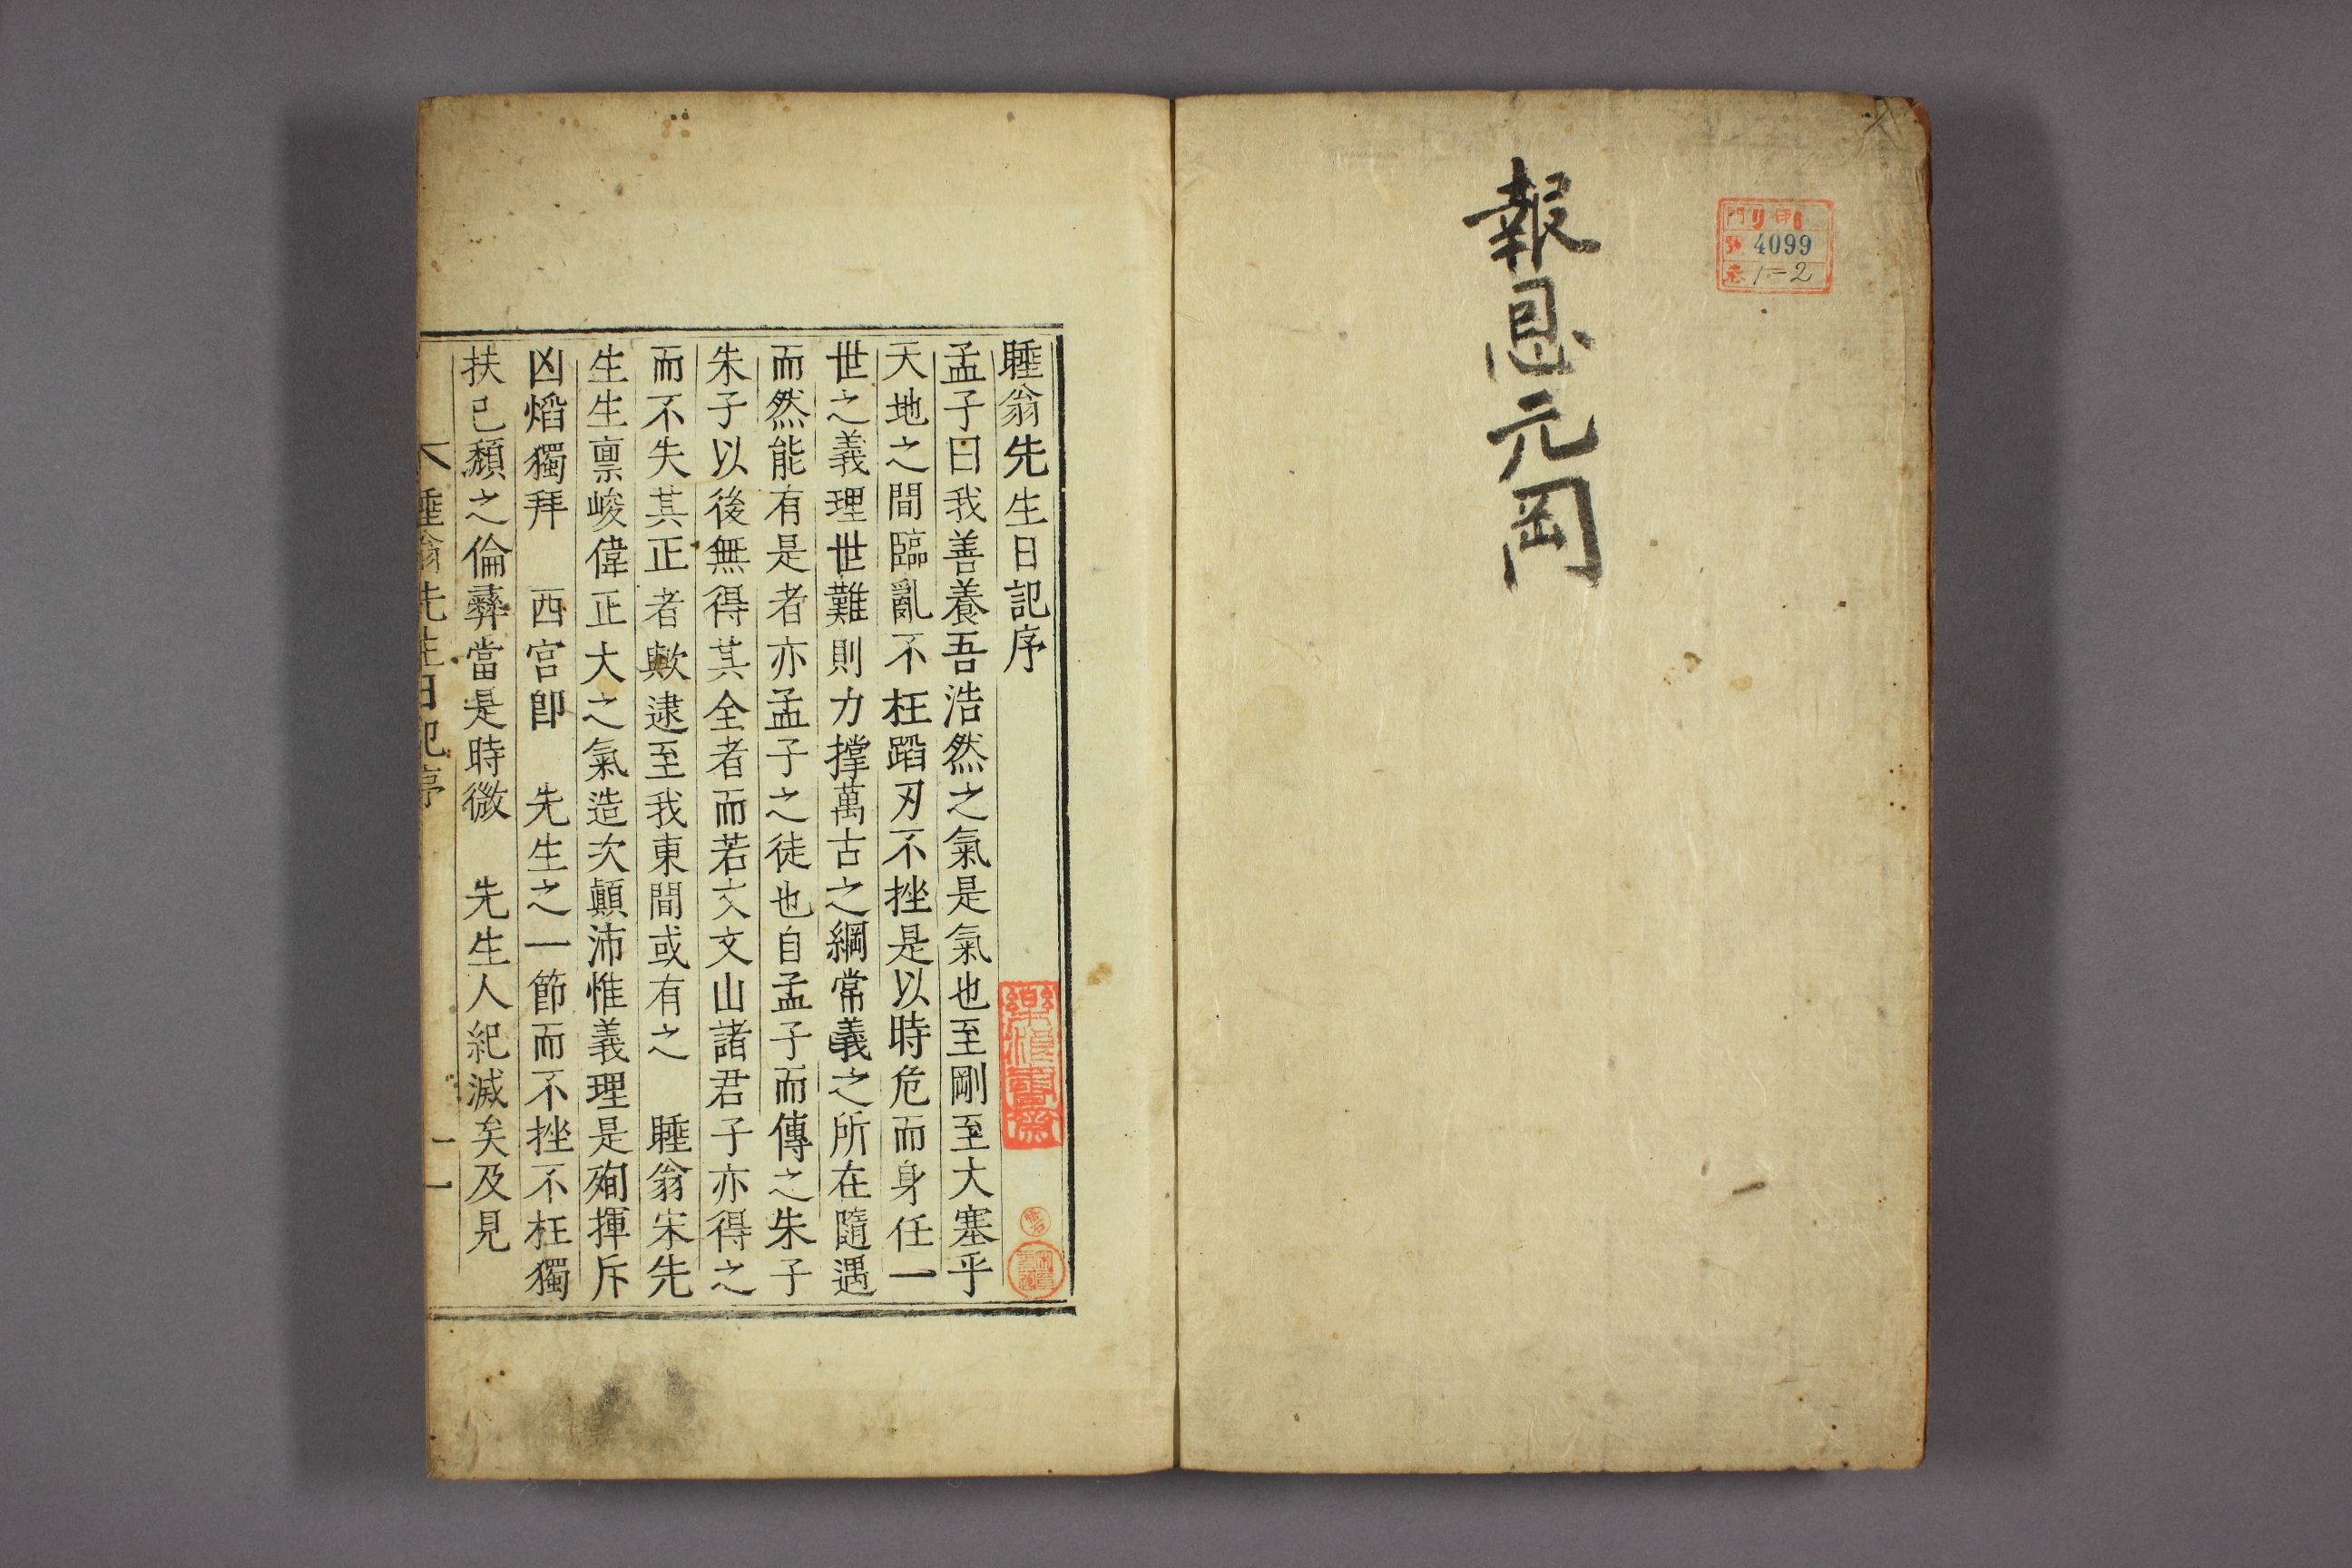 4099
1-2
報恩元岡
睡翁先生日記序
孟子曰我善養吾浩然之氣是氣也至剛至大塞乎
天地之間臨亂不枉蹈刃不挫是以時危而身任一
世之義理世難則力撑萬古之綱常義之所在隨遇
而然能有是者亦孟子之徒也自孟子而傳之朱子
朱子以後無得其全者而若文文山諸君子亦得之
而不失其正者歟逮至我東間或有之　睡翁宋先
生生禀峻偉正大之氣造次顚沛惟義理是殉揮斥
凶熖獨拜　西宮卽　先生之一節而不挫不枉獨
扶已頹之倫彝當是時微　先生人紀滅矣及見
睡翁先生日記序　一